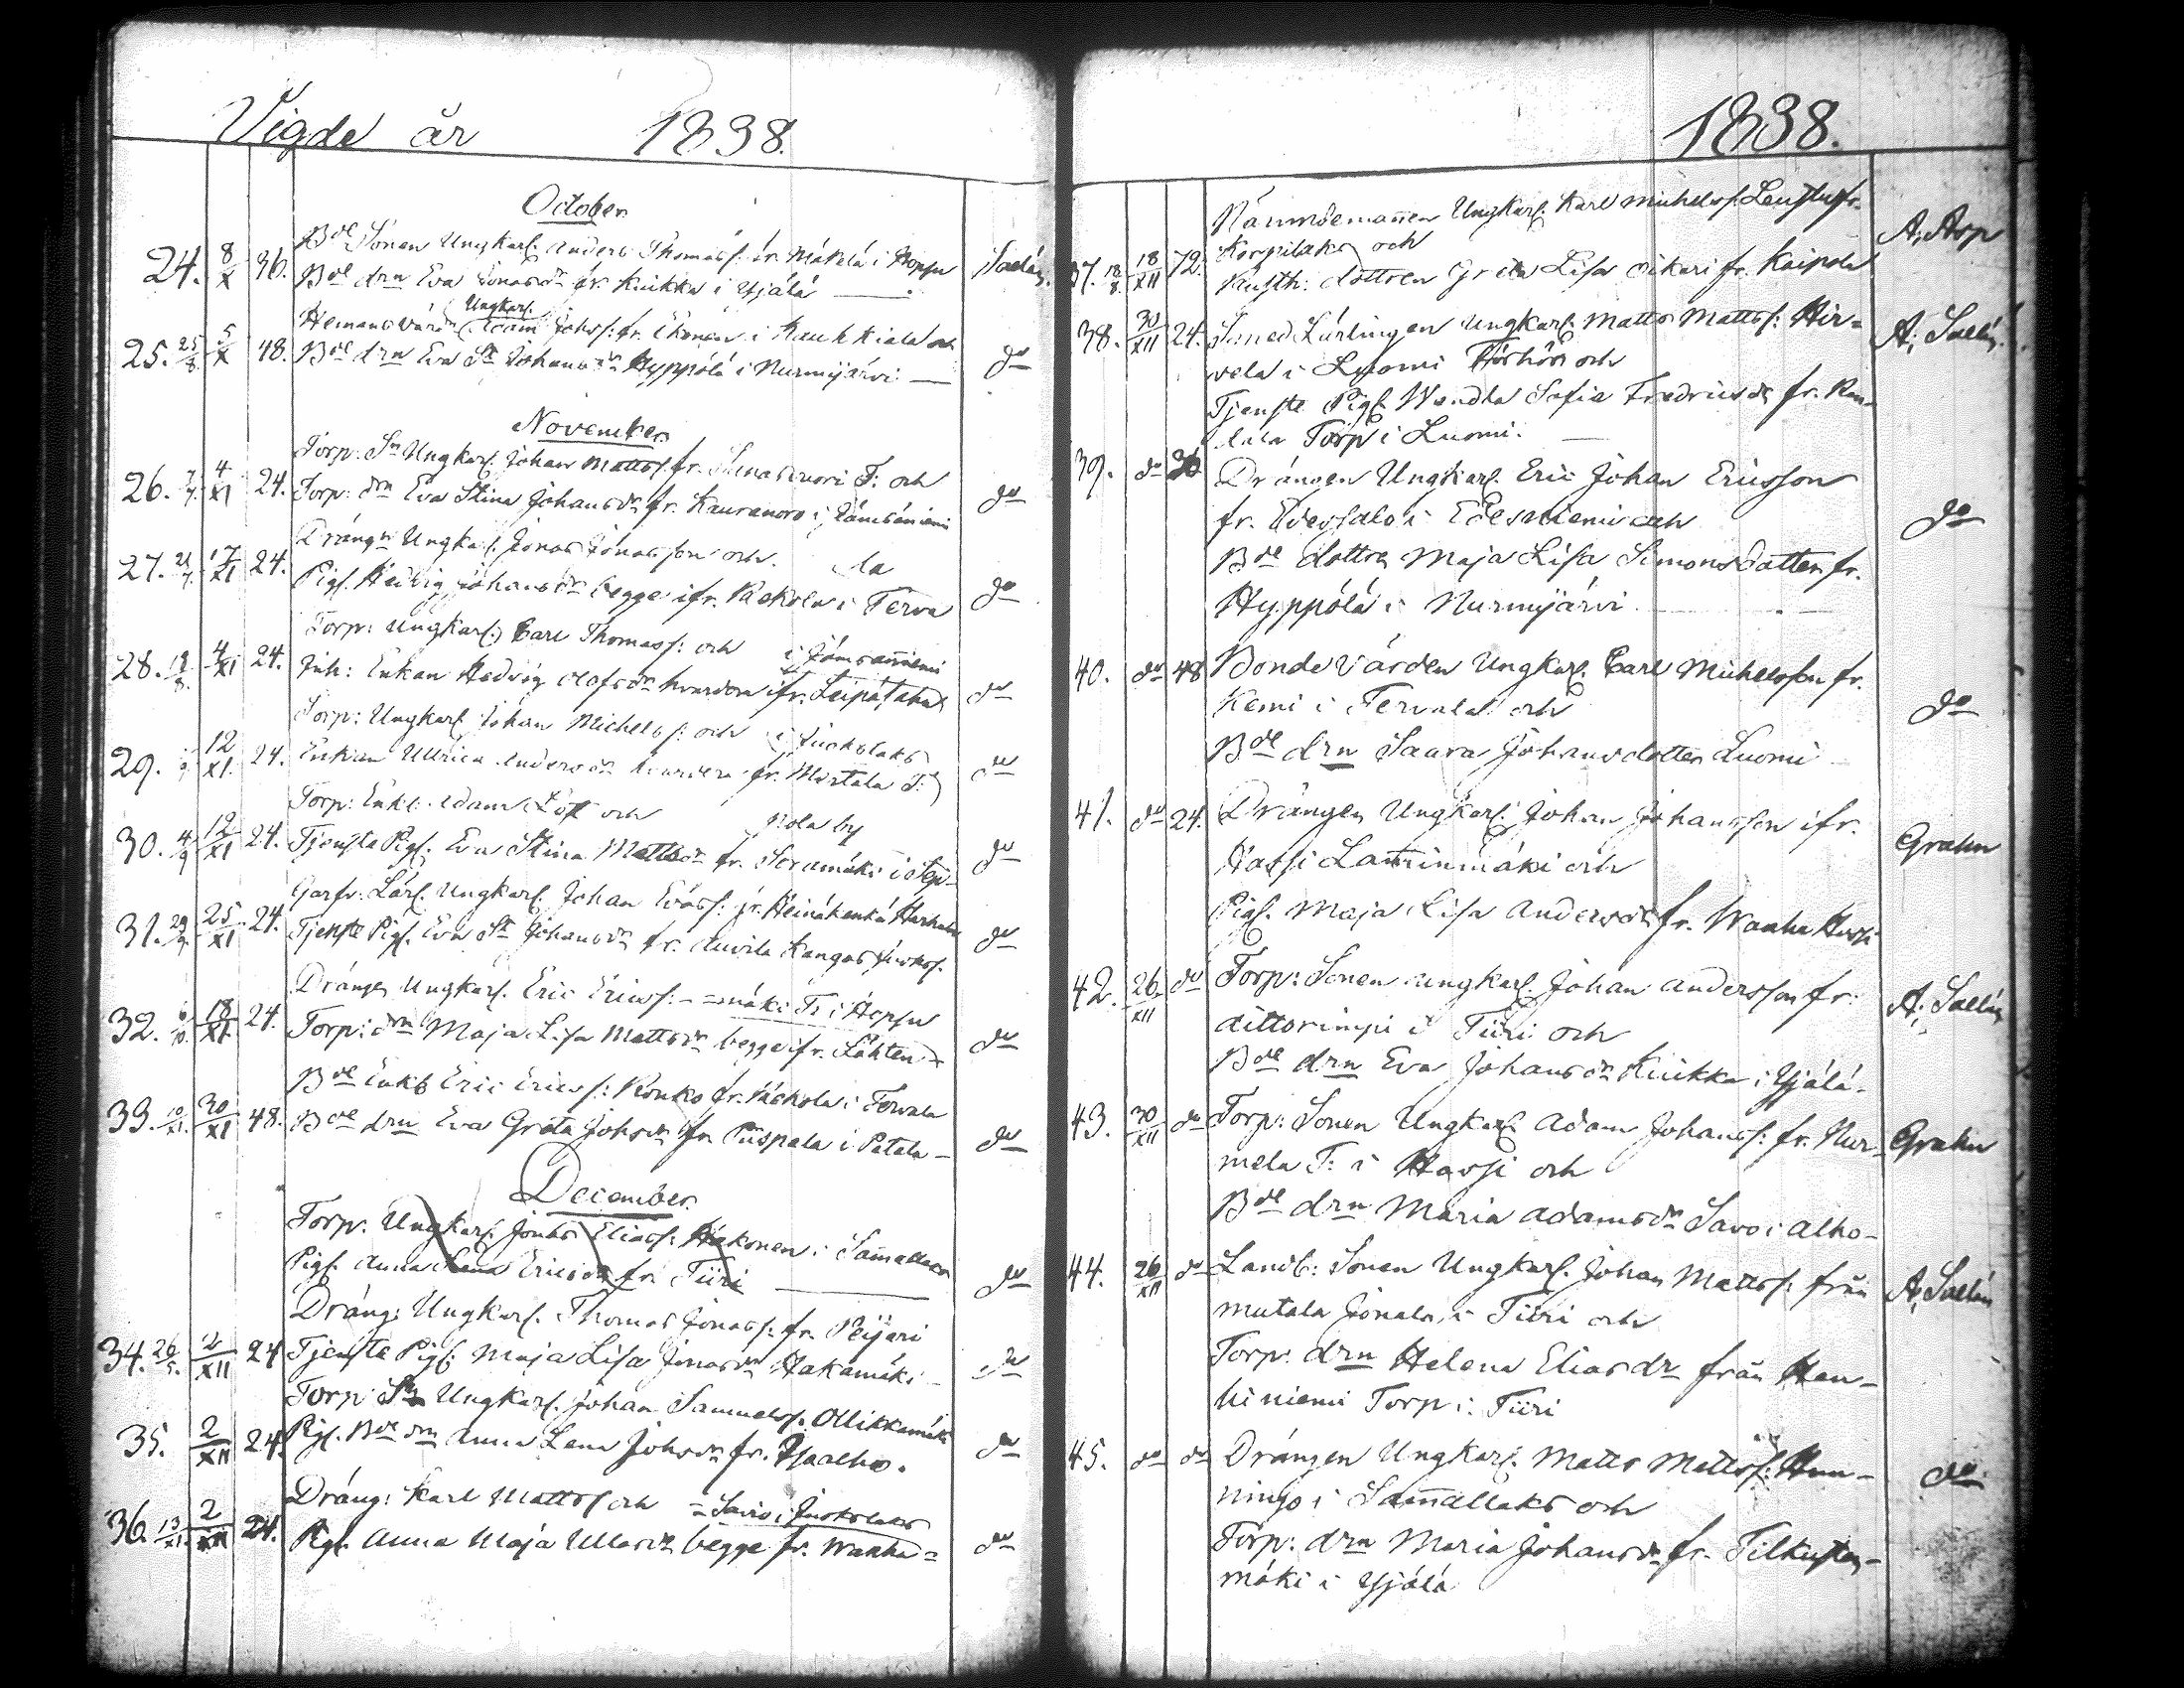 Vigde år 1838.
October
24. 8/X 96. Bde Sonen Ungkarl. Anders Thomass: fr. Mäkelä i Hopsu
Bde drn Eva Jonasdr fr. Kuikka i Yjälä Sallén.
Ungkarl.
25. 25/8. 5/X 48. Hemansvärdn Adam Johss: fr. Ekonen i
Bde drn Eva St. Johansdr Hyppölä i Nurmijärvi do
November
26. 4/XI 24. Torp: Sn Ungkarl. Johan Mattss. fr. T: och
Torp: drn Eva Stina Johansdr fr. Kauranoro i Jämsäniemi do
27. 17/XI 24. Drängn Ungkarl. Jonas Jonasson och la
Pigl. Hedvig Johansdr begge ifr. Päckola i Terva do
28. 4/XI 24. Torp: Ungkarl. Carl Thomass: och i Jämsäniemi
Inh: Enkan Hedvig Olofsdr ifr. do
29. 12/XI. 24. Torp: Ungkarl. Johan Michelss: och
Enkan Ullrica Andersdr fr. Mertala T: do
30. 4/9 12/XI 24. Torp: Enkl. Adam Löf och pola by
Tjenste Pigl. Eva Stina Mattsdr fr. i Sep- do
31. 29/9. 25/XI 24. Garfv. Lärl. Ungkarl. Johan fr. Heinäkenkä
Tjenste Pigl. Eva St. Johansdr fr. Auvila Kangas do
32. 18/XI. 24. Drängen Ungkarl. Eric Ericss: - =mäki T: i Hopsu
Torp: drn Maja Lisa Mattsdr begge ifr. Lähten= do
33. 30/XI 48. Bde Enkl Eric Ericss: Ronko fr. Päckola i Tervala
Bde drn Eva Greta Johsdr fr. Piispala i Patala - do
December.
Torp: Ungkarl. Jonas Eliass: Häkonen i Sam̄allax
Pigl. Anna Lena Ericsdr fr. Tiiri do
34. 26/5. 2/XII 24 Dräng: Ungkarl. Thomas Jonass: fr. Peijari
Tjenste Pigl. Maja Lisa Jonasdr Hakamäki - do
35. 2/XII 24. Torp: Sn Ungkarl. Johan Samuelss. Ollikkamäki
Pigl. Bde drn Anna Lena Johsdr fr. do
36. 13/XI. 2/XII 24. Dräng: Karl Mattss och = Savio i Juokslaks
Pigl. Anna Maja Ullasdr begge fr. Wanha= do
1838.
Nämndemannen Ungkarl. Karl Michelss.
37. 18/XII 72. Korpilaks och A: Arp
Rusth: dottren Greta Lisa Oikari fr. Kaipola
38. 30/XII 24. Smed Lärlingen Ungkarl. Matts Mattss: Hir= A: Sallén.
vela i Luomi och
Tjenste Pigl. Wendla Sofia Fredricsdr fr. Ran-
tala Torp i Luomi.
39. do Drängen Ungkarl. Eric Johan Ericsson
fr. Edessalo i Edesniemi och do
Bde dottren Maja Lisa Simonsdotter fr.
Hyppölä i Nurmijärvi
40. do 48 Bonde Värden Ungkarl. Carl Michelsson fr.
Kemi i Tervala och do
Bde drn Saara Johansdotter Luomi
41. do 24. Drängen Ungkarl. Johan Johansson ifr.
Hassi och Grahn
Pigl. Maja Lisa Andersdr fr. Wanha Hassi
42. 26/XII do Torp: Sonen Ungkarl. Johan Andersson fr: A: Sallén
i Tiiri och
Bde drn Eva Johansdr Kuikka i Yjälä.
43. 30/XII do Torp: Sonen Ungkarl. Adam Johanss: fr. Nur- Grahn
mela T: i Hassi och
Bde drn Maria Adamsdr Savoi Alho-
44. 26/XII do Landb: Sonen Ungkarl. Johan Mattss: från A: Sallén
mutala Jonala i Tiiri och
Torp: drn Helena Eliasdr från Hau-
kiniemi Torp i Tiiri
45. do do Drängen Ungkarl. Matts Mattss: Hun- do
ningo i Sam̄allaks och
Torp: drn Maria Johansdr fr. Tilkusten-
mäki i Yjälä